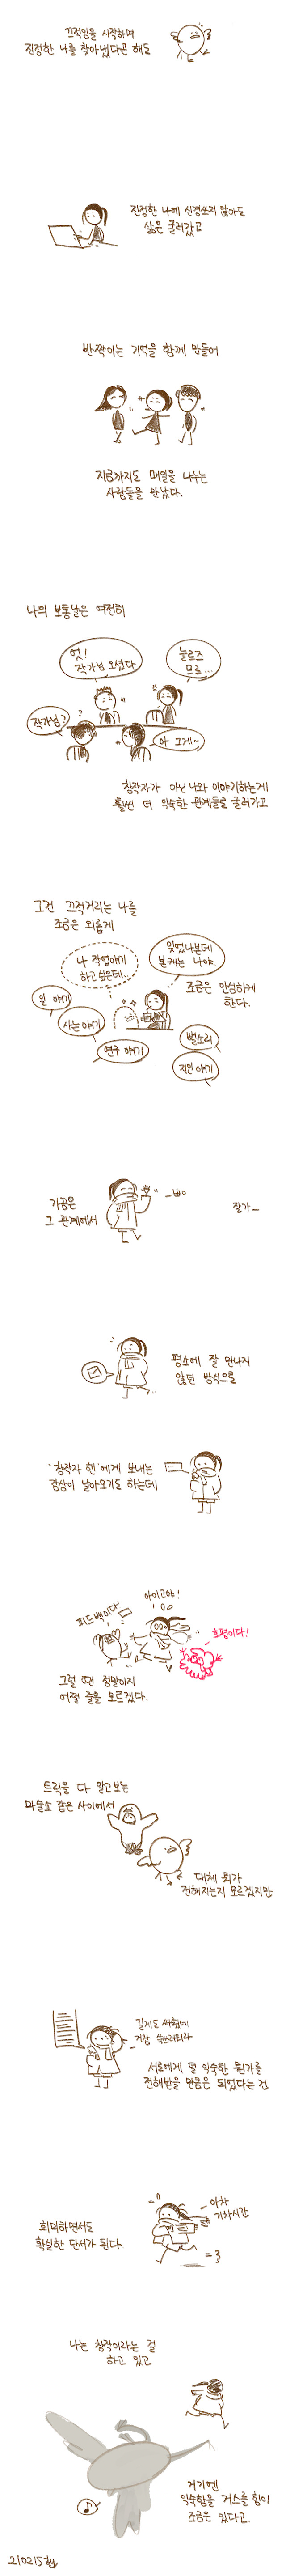 끄적임을 시작하며
진정한 나를 찾아냈다곤 해도
진정한 나에 신경쓰지 않아도
삶은 굴러갔고
반짝이는 기억을 함께 만들어
지금까지도 매일을 나누는
사람들을 만났다.
나의 보통날은 여전히
엇!
작가님 오셨다
늘르즈
므르...
작가님?
?
아 그게~
창작자가 아닌 나와 이야기하는게
훨씬 더 익숙한 관계들로 굴러가고
그건 끄적거리는 나를
조금은 외롭게
나 작업얘기
하고 싶은데..
잊었나본데
본캐는 나야.
조금은 안심하게
한다.
일 얘기
사는 얘기
연구 얘기
뻘소리
지인 얘기
가끔은
그 관계에서
잘가_
평소에 잘 만나지
않던 방식으로
'창작자 핸'에게 보내는
감상이 날아오기도 하는데
아이고야!
피드백이다
호평이다!
그럴 땐 정말이지
어쩔 줄을 모르겠다.
트릭을 다 알고보는
마술쇼 같은 사이에서
대체 뭐가
전해지는지 모르겠지만
길게도 써줬네
거참 쑥쓰러워라
서로에게 덜 익숙한 뭔가를
전해받을 만큼은 되었다는 건
희미하면서도
확실한 단서가 된다.
아차
기차시간
나는 창작이라는 걸
하고 있고
거기엔
익숙함을 거스를 힘이
조금은 있다고.
210215 핸